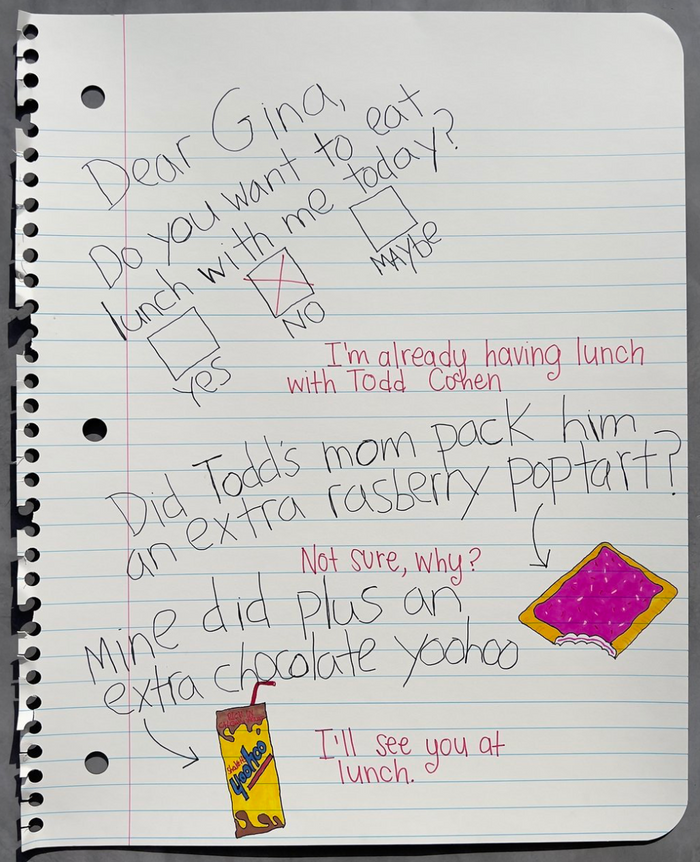 Dear Gina,
Do you want to eat
lunch with me today?
YES
NO
MAYBE
I'm already having lunch
with Todd Cohen
Did Todd's mom pack him
an extra rasberry poptart?
Not sure, why?
Mine did plus an
extra chocolate yoohoo
yoohoo
I'll see you at
lunch.